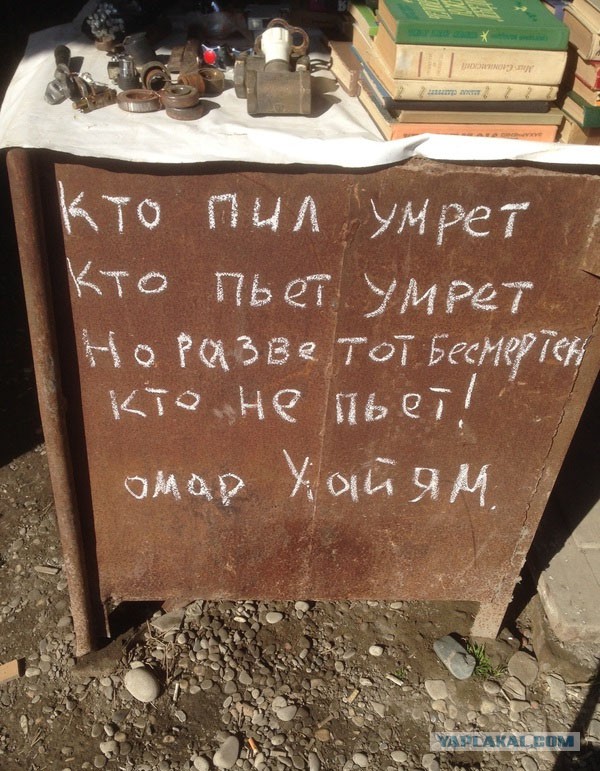 Кто пил умрет
Кто пьет умрет
Но разве тот бесмертен
кто не пьет!
омар Хайям.
YAPLAKAL.COM